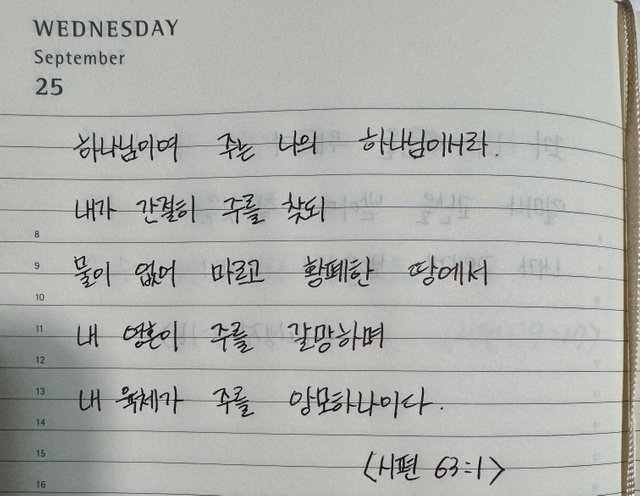 WEDNESDAY
September
25
하나님이여 주는 나의 하나님이시라.
내가 간절히 주를 찾되
8
9 물이 없어 마르고 황폐한 땅에서
10
11 내 영혼이 주를 갈망하며
12
13 내 육체가 주를 앙모하나이다.
14
15 <시편 63:1>
16